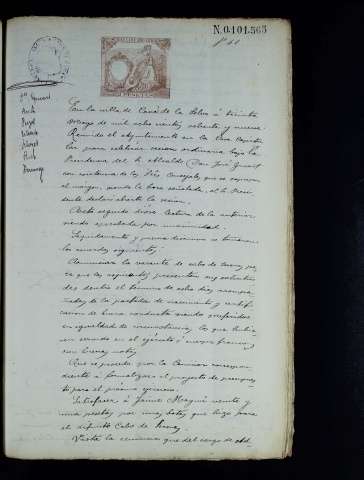 N.0.101.565
En la villa de Cassá de la Selva á treinta
Mayo de mil ocho cientos ochenta y nueve.
Reunido el Ayuntamiento en la Casa Capitu-
lar para celebrar sesion ordinaria bajo la
Presidencia del Alcalde Don José
con asistencia de los Sres Concejales que se expresan
al margen, siendo la hora señalada, el Sr. Presi-
dente declaró abierta la sesion.
Acto seguido dióse lectura de la anterior
siendo aprobada por unanimidad.
Seguidamente y previa discusion se tomaron
los acuerdos siguientes:
Anunciar la vacante de cabo de
ra que los aspirantes presenten sus solicitu-
des dentro el termino de ocho dias acompa-
ñadas de la partida de nacimiento y certifi-
cacion de buena conducta siendo preferidos
en igualdad de circunstancias, los que hubie-
sen servido en el ejército ó
con buena nota.
Que se proceda por la Comision correspon-
diente á formalizar el proyecto de presupues-
to para el próximo ejercicio.
Satisfacer á Jaime veinte y
una pesetas por unas botas que hizo para
el difunto Cabo de
Vista la renuncia que del cargo de